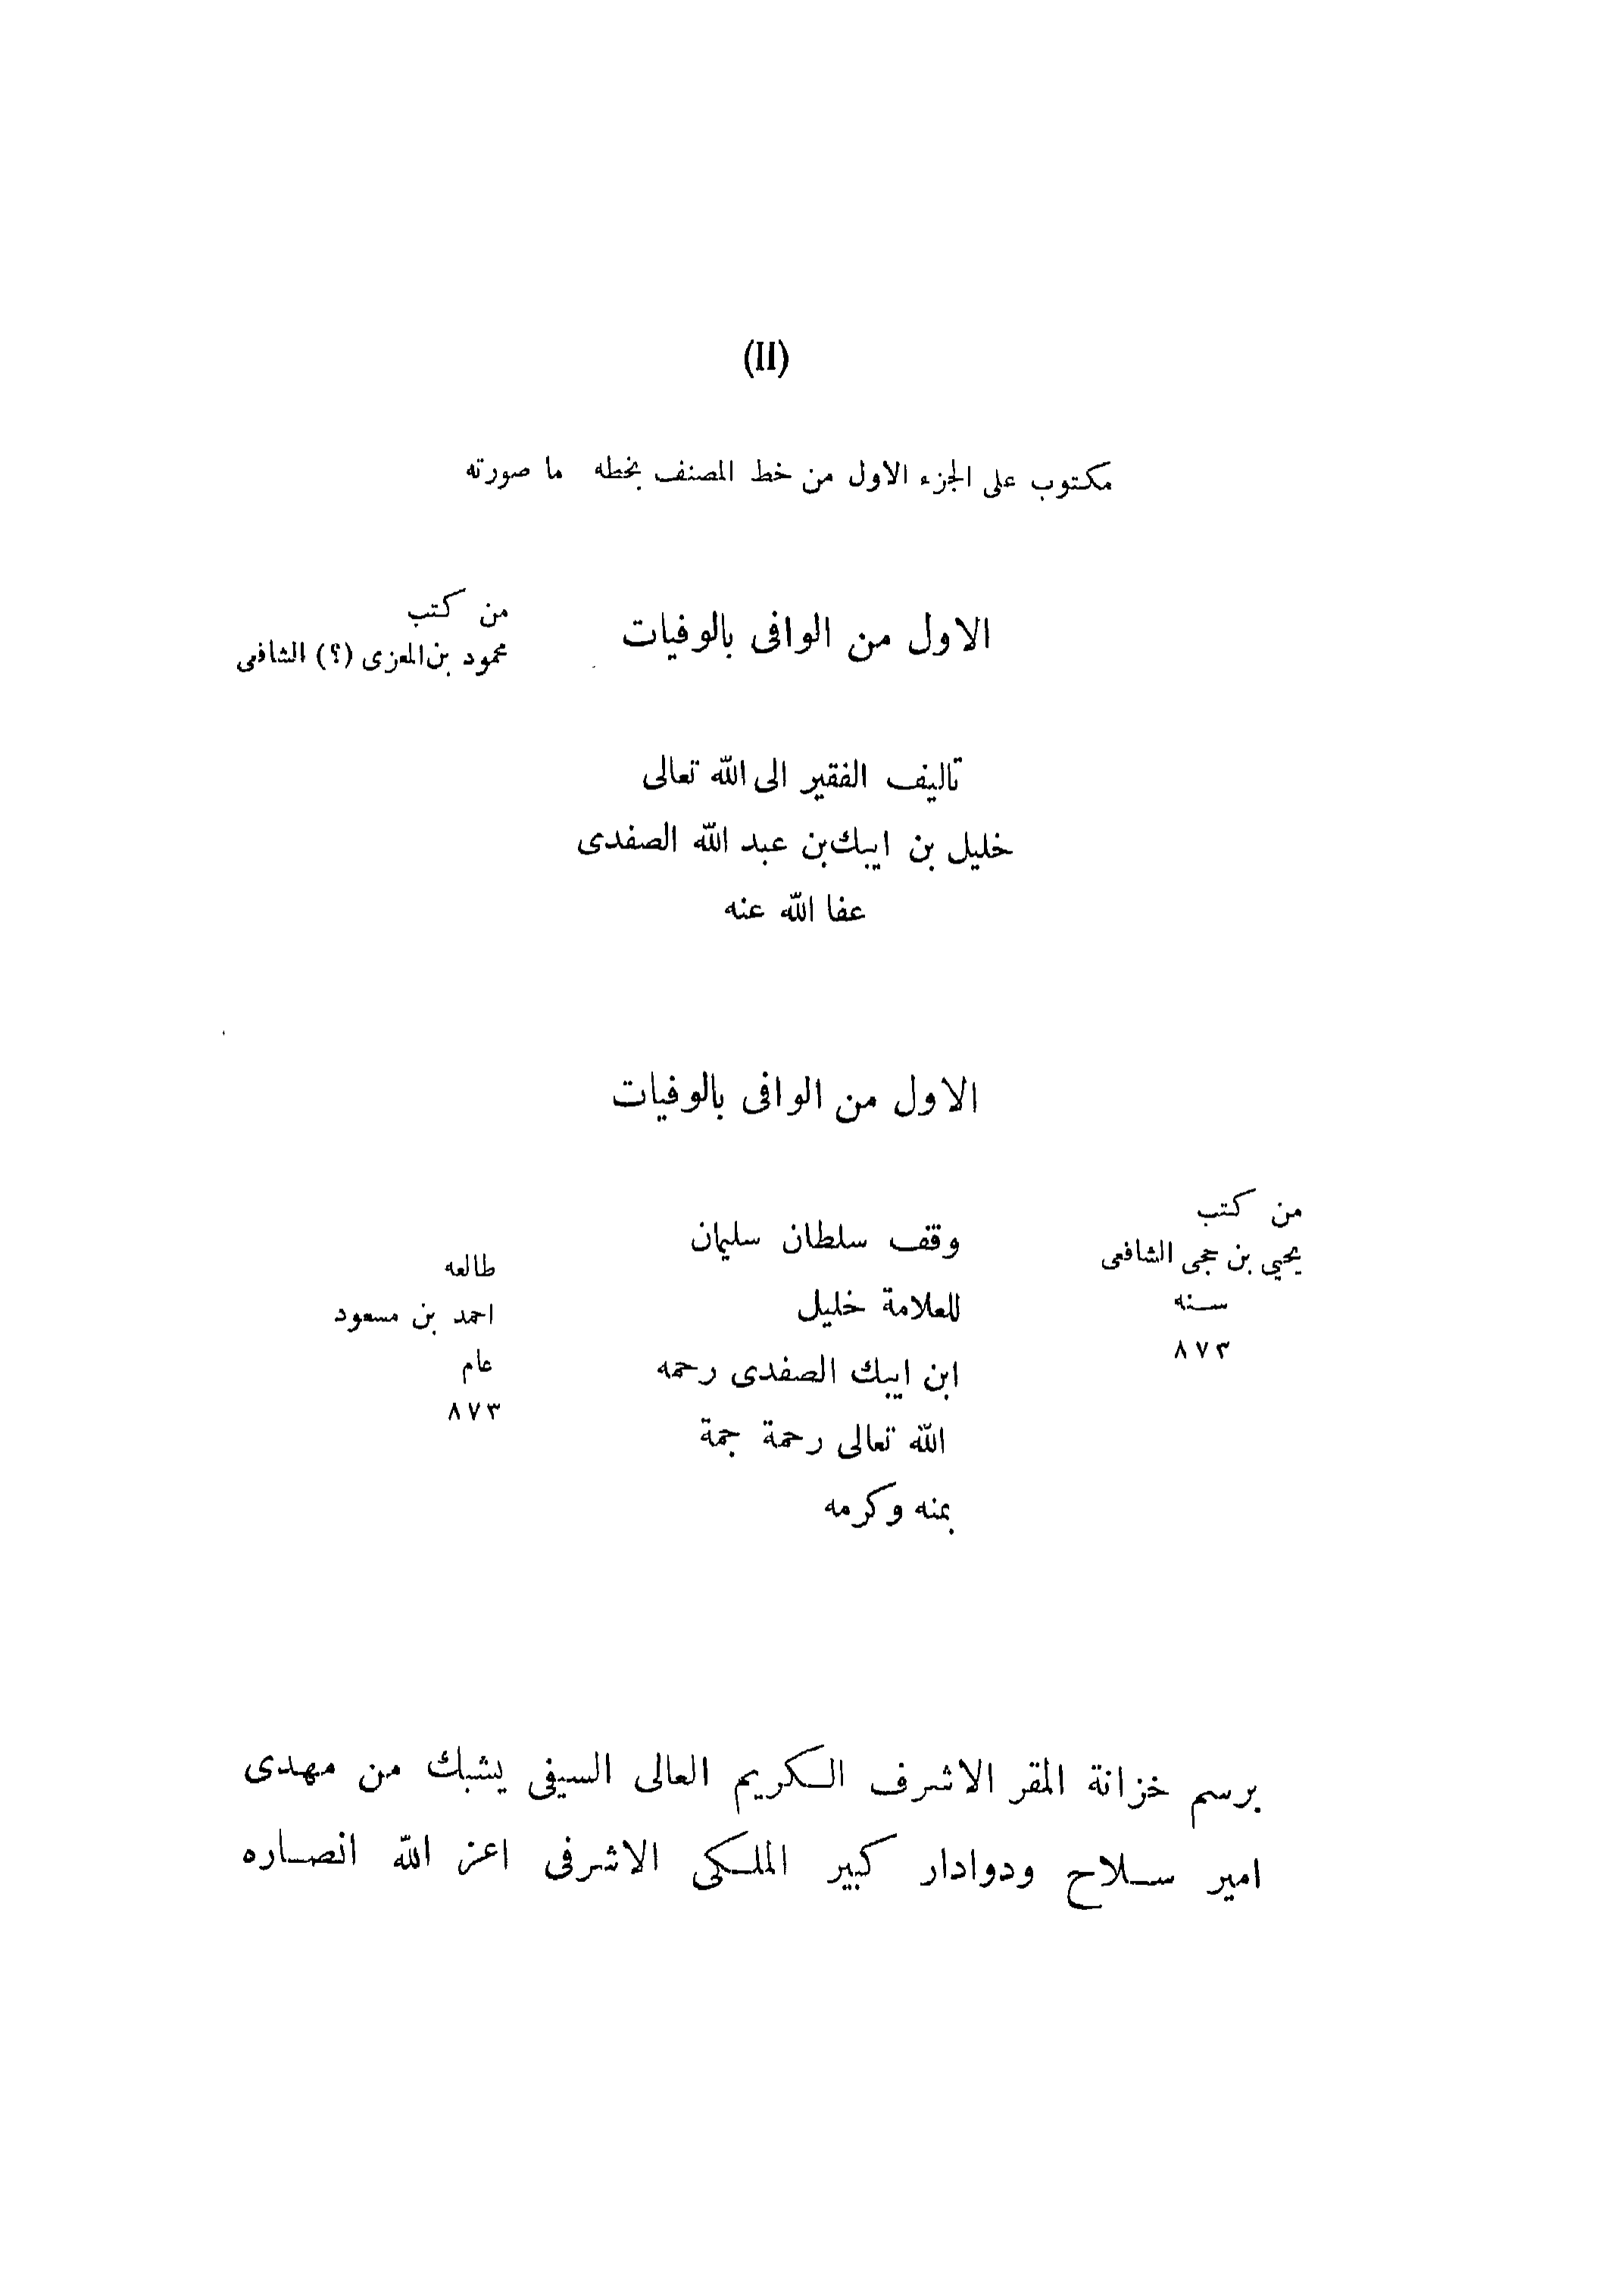 (II)
مكتوب على الجزء الاول من خط المصنف بخطه ما صورته
الاول من الوافى بالوفيات
من كتب
محمود بن المعزى (؟) الشافعى
تاليف الفقير الى الله تعالى
خليل بن ايبك بن عبد الله الصفدى
عفا الله عنه
الاول من الوافى بالوفيات
من كتب
يحيي بن حجى الشافعى
سنه
٨٧٣
وقف سلطان سليمان
للعلامة خليل
ابن ايبك الصفدى رحمه
الله تعالى رحمة جمة
بمنه وكرمه
طالعه
احمد بن مسعود
عام
٨٧٣
برسم خزانة المقر الاشرف الكريم العالى السيفى يشبك من مهدى
امير سلاح ودوادار كبير الملكى الاشرفى اعز الله انصاره